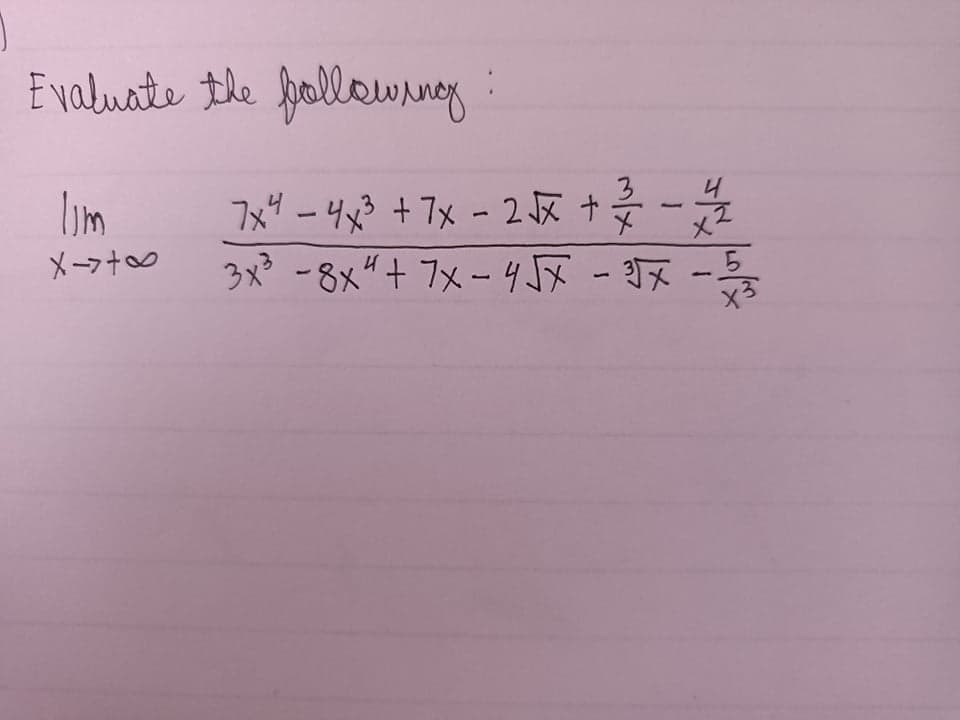 )
Evaluate the following :
lim x→+∞ (7x⁴ - 4x³ + 7x - 2√x + 3/x - 4/x²) / (3x³ - 8x⁴ + 7x - 4√x - ∛x - 5/x³)